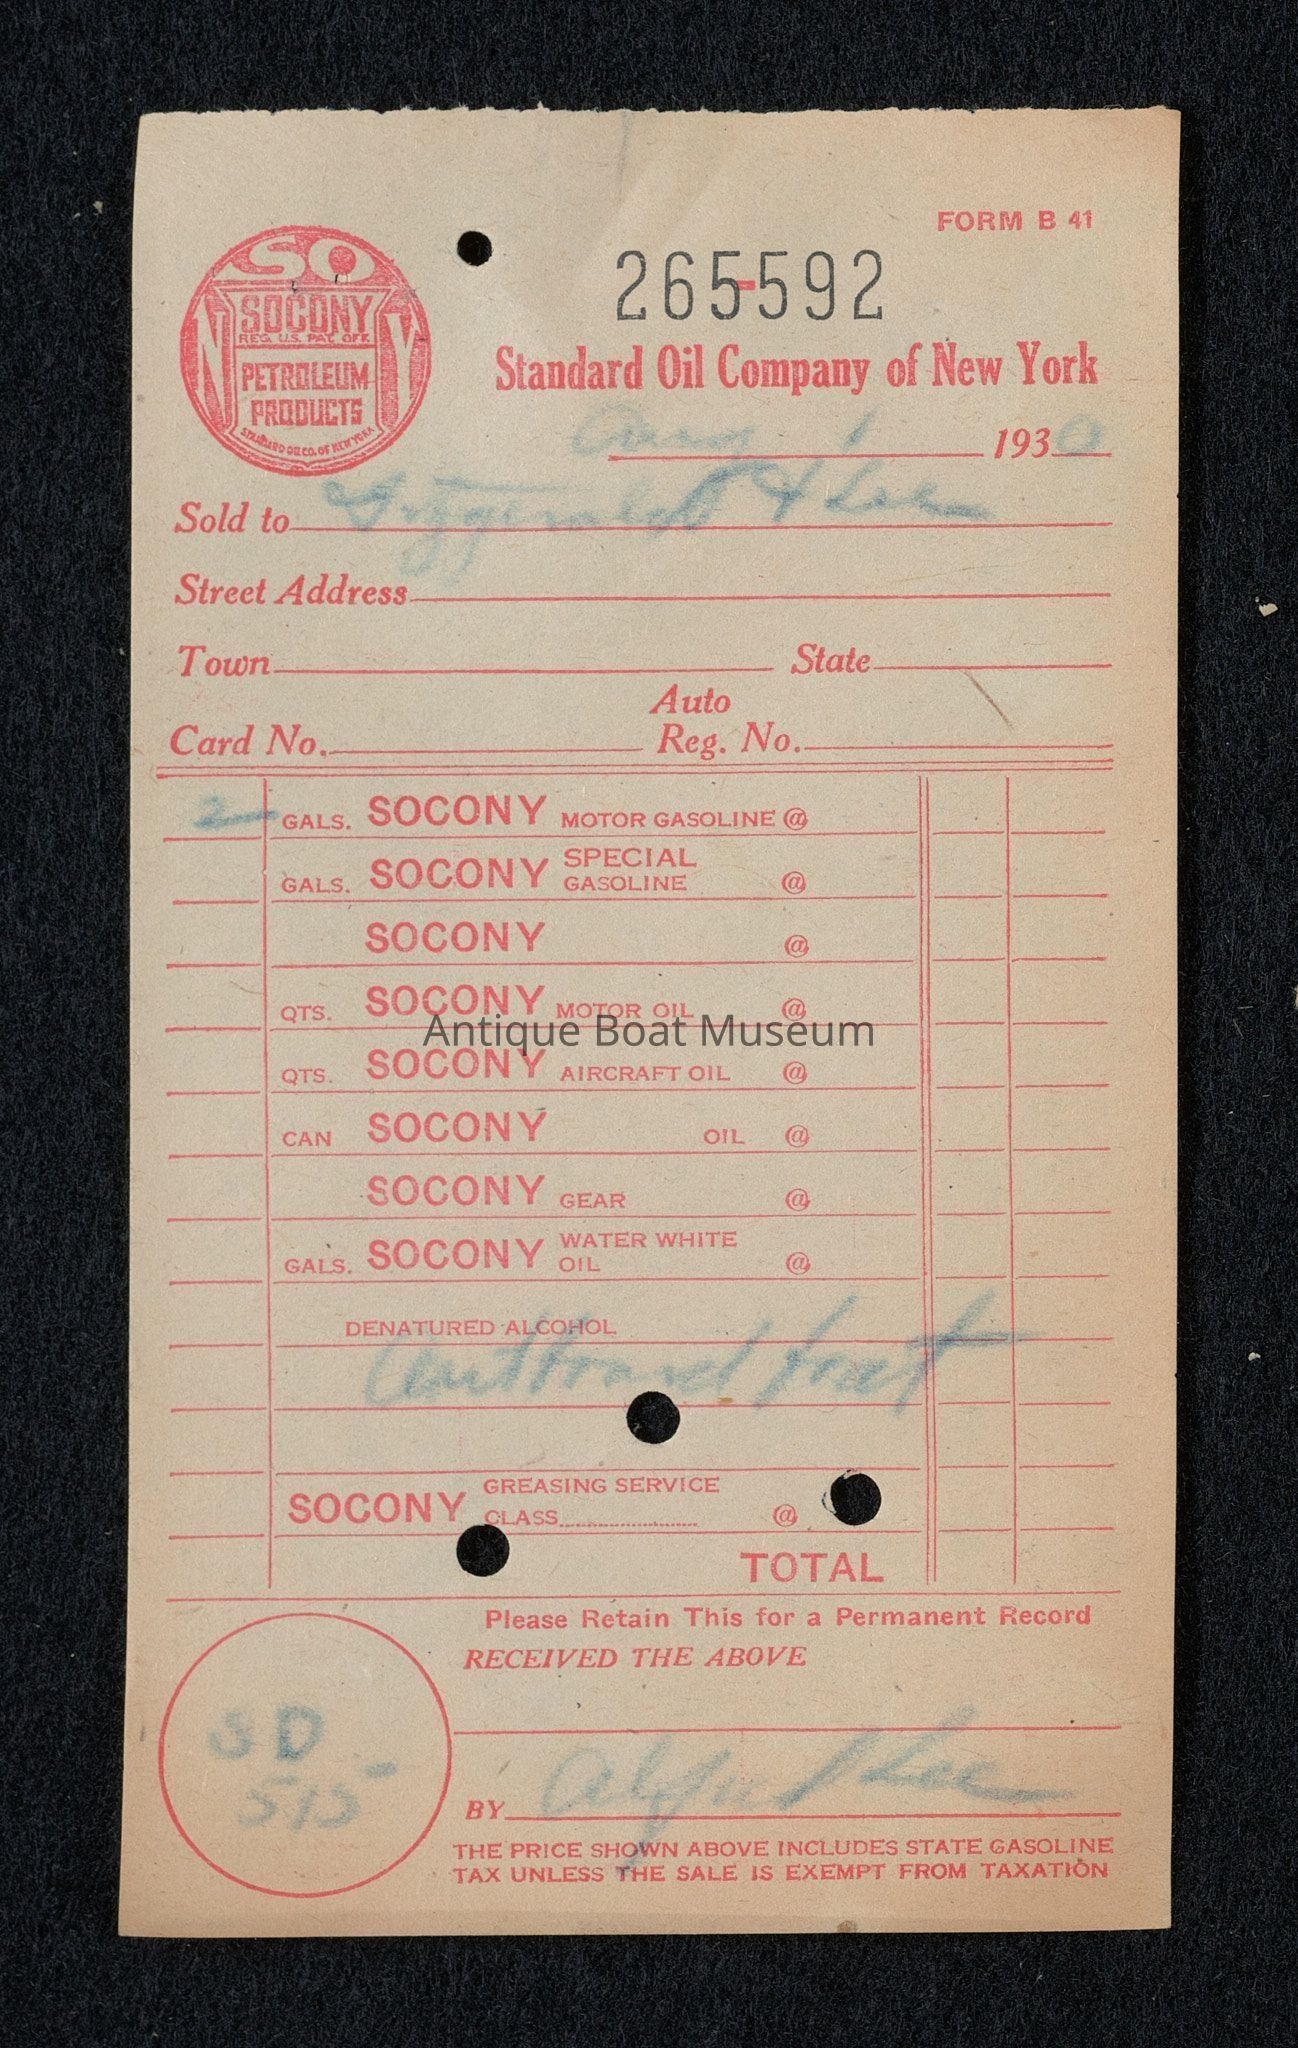 FORM B 41
265-592
SO
NY
SOCONY
REG. U.S. PAT. OFF.
PETROLEUM
PRODUCTS
STANDARD OIL CO. OF NEW YORK
Standard Oil Company of New York
Aug 1 1930
Sold to Fitzgerald & Lee
Street Address
Town State
Auto
Card No. Reg. No.
2 GALS. SOCONY MOTOR GASOLINE @
GALS. SOCONY SPECIAL GASOLINE @
SOCONY @
QTS. SOCONY MOTOR OIL @
Antique Boat Museum
QTS. SOCONY AIRCRAFT OIL @
CAN SOCONY OIL @
SOCONY GEAR @
GALS. SOCONY WATER WHITE OIL @
DENATURED ALCOHOL
Outboard boat
SOCONY GREASING SERVICE
CLASS @
TOTAL
Please Retain This for a Permanent Record
RECEIVED THE ABOVE
SD
515
BY Alfred Lee
THE PRICE SHOWN ABOVE INCLUDES STATE GASOLINE
TAX UNLESS THE SALE IS EXEMPT FROM TAXATION